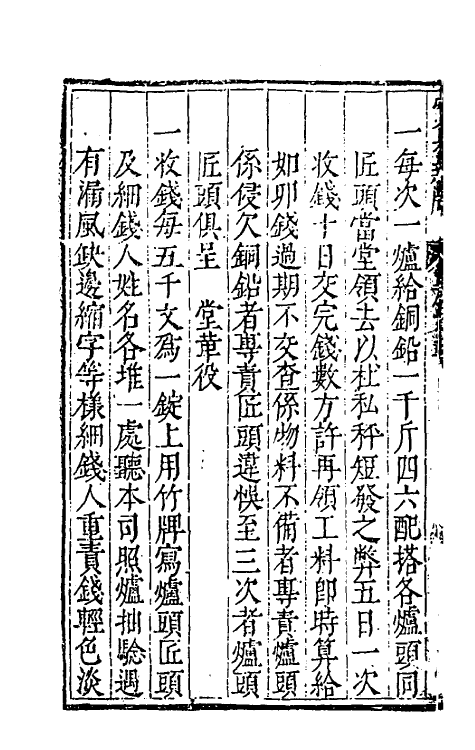 一每次一爐給銅鉛一千斤四六配搭各爐頭同
匠頭當堂領去以杜私秤短發之弊五日一次
收錢十日交完錢數方許再領工料即時算給
如卯錢過期不交查係物料不備者專責爐頭
係侵欠銅鉛者專責匠頭違悞至三次者爐頭
匠頭俱呈　堂革役
一收錢每五千文爲一錠上用竹牌寫爐頭匠頭
及細錢人姓名各堆一處聽本司照爐抽驗遇
有漏風缺邊縮字等樣細錢人重責錢輕色淡